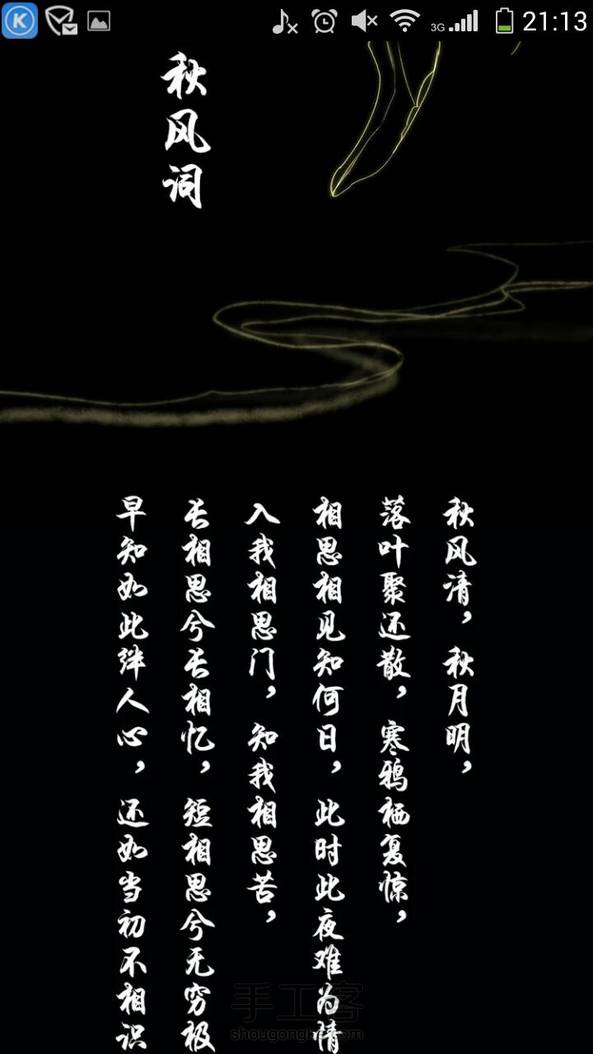 21:13
3G
秋风词
秋风清，秋月明，
落叶聚还散，寒鸦栖复惊，
相思相见知何日，此时此夜难为情
入我相思门，知我相思苦，
长相思兮长相忆，短相思兮无穷极
早知如此绊人心，还如当初不相识
手工客